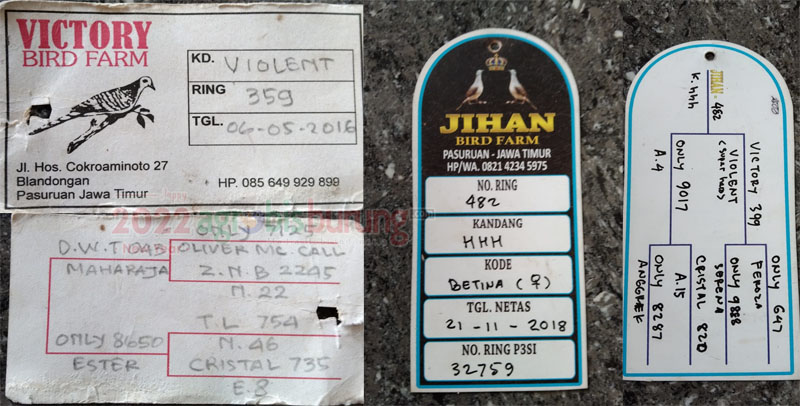 VICTORY
BIRD FARM
KD. VIOLENT
RING 359
TGL. 06-05-2016
Jl. Hos. Cokroaminoto 27
Blandongan
Pasuruan Jawa Timur
HP. 085 649 929 899
ONLY 7125
D.W.T 043 OLIVER MC CALL
MAHARAJA Z.N.B 2245
M. 22
T.L 754
ONLY 8650 M. 46
ESTER CRISTAL 735
E.8
JIHAN
BIRD FARM
PASURUAN - JAWA TIMUR
HP/WA. 0821 4234 5975
NO. RING
482
KANDANG
HHH
KODE
BETINA (♀)
TGL. NETAS
21-11-2018
NO. RING P3SI
32759
JIHAN - 482
K. hhh
VICTORY 399
VIOLENT
ONLY 9017
A.4
ONLY 647
PEROZA
ONLY 9888
SERENA
CRISTAL 820
A.15
ONLY 8287
ANGGREK
2022